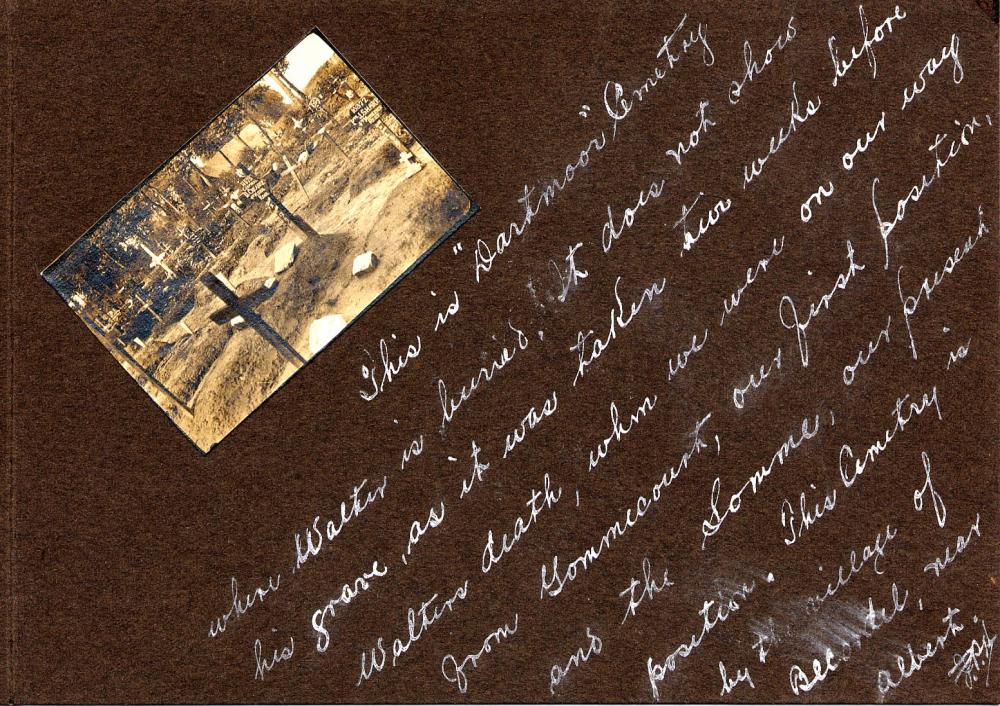 This is "Dartmoor" Cemetry
where Walter is buried. It does not show
his grave, as it was taken two weeks before
Walters death, when we were on our way
from Gommecourt, our first position,
and the Somme, our present
position. This Cemetry is
by the village of
Becordel, near
albert.